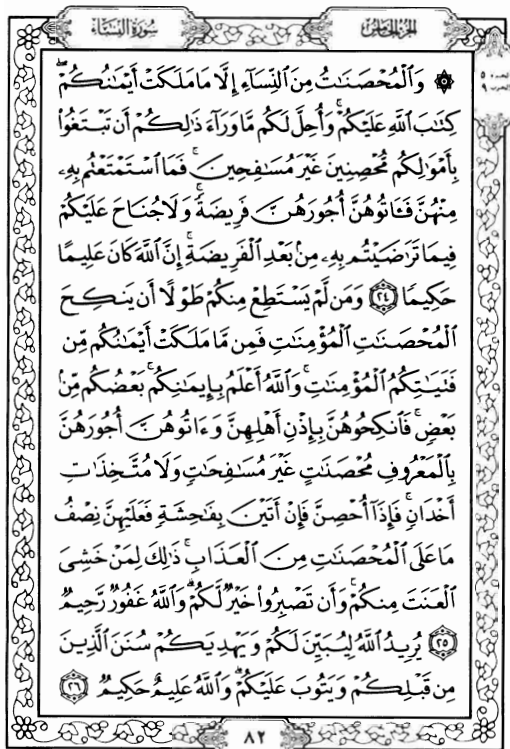 سُورَةُ النِّسَاءِ
الجزء الخامس
۞ وَٱلْمُحْصَنَٰتُ مِنَ ٱلنِّسَآءِ إِلَّا مَا مَلَكَتْ أَيْمَٰنُكُمْۖ
كِتَٰبَ ٱللَّهِ عَلَيْكُمْۚ وَأُحِلَّ لَكُم مَّا وَرَآءَ ذَٰلِكُمْ أَن تَبْتَغُوا۟
بِأَمْوَٰلِكُم مُّحْصِنِينَ غَيْرَ مُسَٰفِحِينَۚ فَمَا ٱسْتَمْتَعْتُم بِهِۦ
مِنْهُنَّ فَـَٔاتُوهُنَّ أُجُورَهُنَّ فَرِيضَةًۚ وَلَا جُنَاحَ عَلَيْكُمْ
فِيمَا تَرَٰضَيْتُم بِهِۦ مِنۢ بَعْدِ ٱلْفَرِيضَةِۚ إِنَّ ٱللَّهَ كَانَ عَلِيمًا
حَكِيمًا ٢٤ وَمَن لَّمْ يَسْتَطِعْ مِنكُمْ طَوْلًا أَن يَنكِحَ
ٱلْمُحْصَنَٰتِ ٱلْمُؤْمِنَٰتِ فَمِن مَّا مَلَكَتْ أَيْمَٰنُكُم مِّن
فَتَيَٰتِكُمُ ٱلْمُؤْمِنَٰتِۚ وَٱللَّهُ أَعْلَمُ بِإِيمَٰنِكُمۚ بَعْضُكُم مِّنۢ
بَعْضٍۚ فَٱنكِحُوهُنَّ بِإِذْنِ أَهْلِهِنَّ وَءَاتُوهُنَّ أُجُورَهُنَّ
بِٱلْمَعْرُوفِ مُحْصَنَٰتٍ غَيْرَ مُسَٰفِحَٰتٍ وَلَا مُتَّخِذَٰتِ
أَخْدَانٍۚ فَإِذَآ أُحْصِنَّ فَإِنْ أَتَيْنَ بِفَٰحِشَةٍ فَعَلَيْهِنَّ نِصْفُ
مَا عَلَى ٱلْمُحْصَنَٰتِ مِنَ ٱلْعَذَابِۚ ذَٰلِكَ لِمَنْ خَشِىَ
ٱلْعَنَتَ مِنكُمْۚ وَأَن تَصْبِرُوا۟ خَيْرٌ لَّكُمْۗ وَٱللَّهُ غَفُورٌ رَّحِيمٌ
٢٥ يُرِيدُ ٱللَّهُ لِيُبَيِّنَ لَكُمْ وَيَهْدِيَكُمْ سُنَنَ ٱلَّذِينَ
مِن قَبْلِكُمْ وَيَتُوبَ عَلَيْكُمْۗ وَٱللَّهُ عَلِيمٌ حَكِيمٌ ٢٦
٨٢